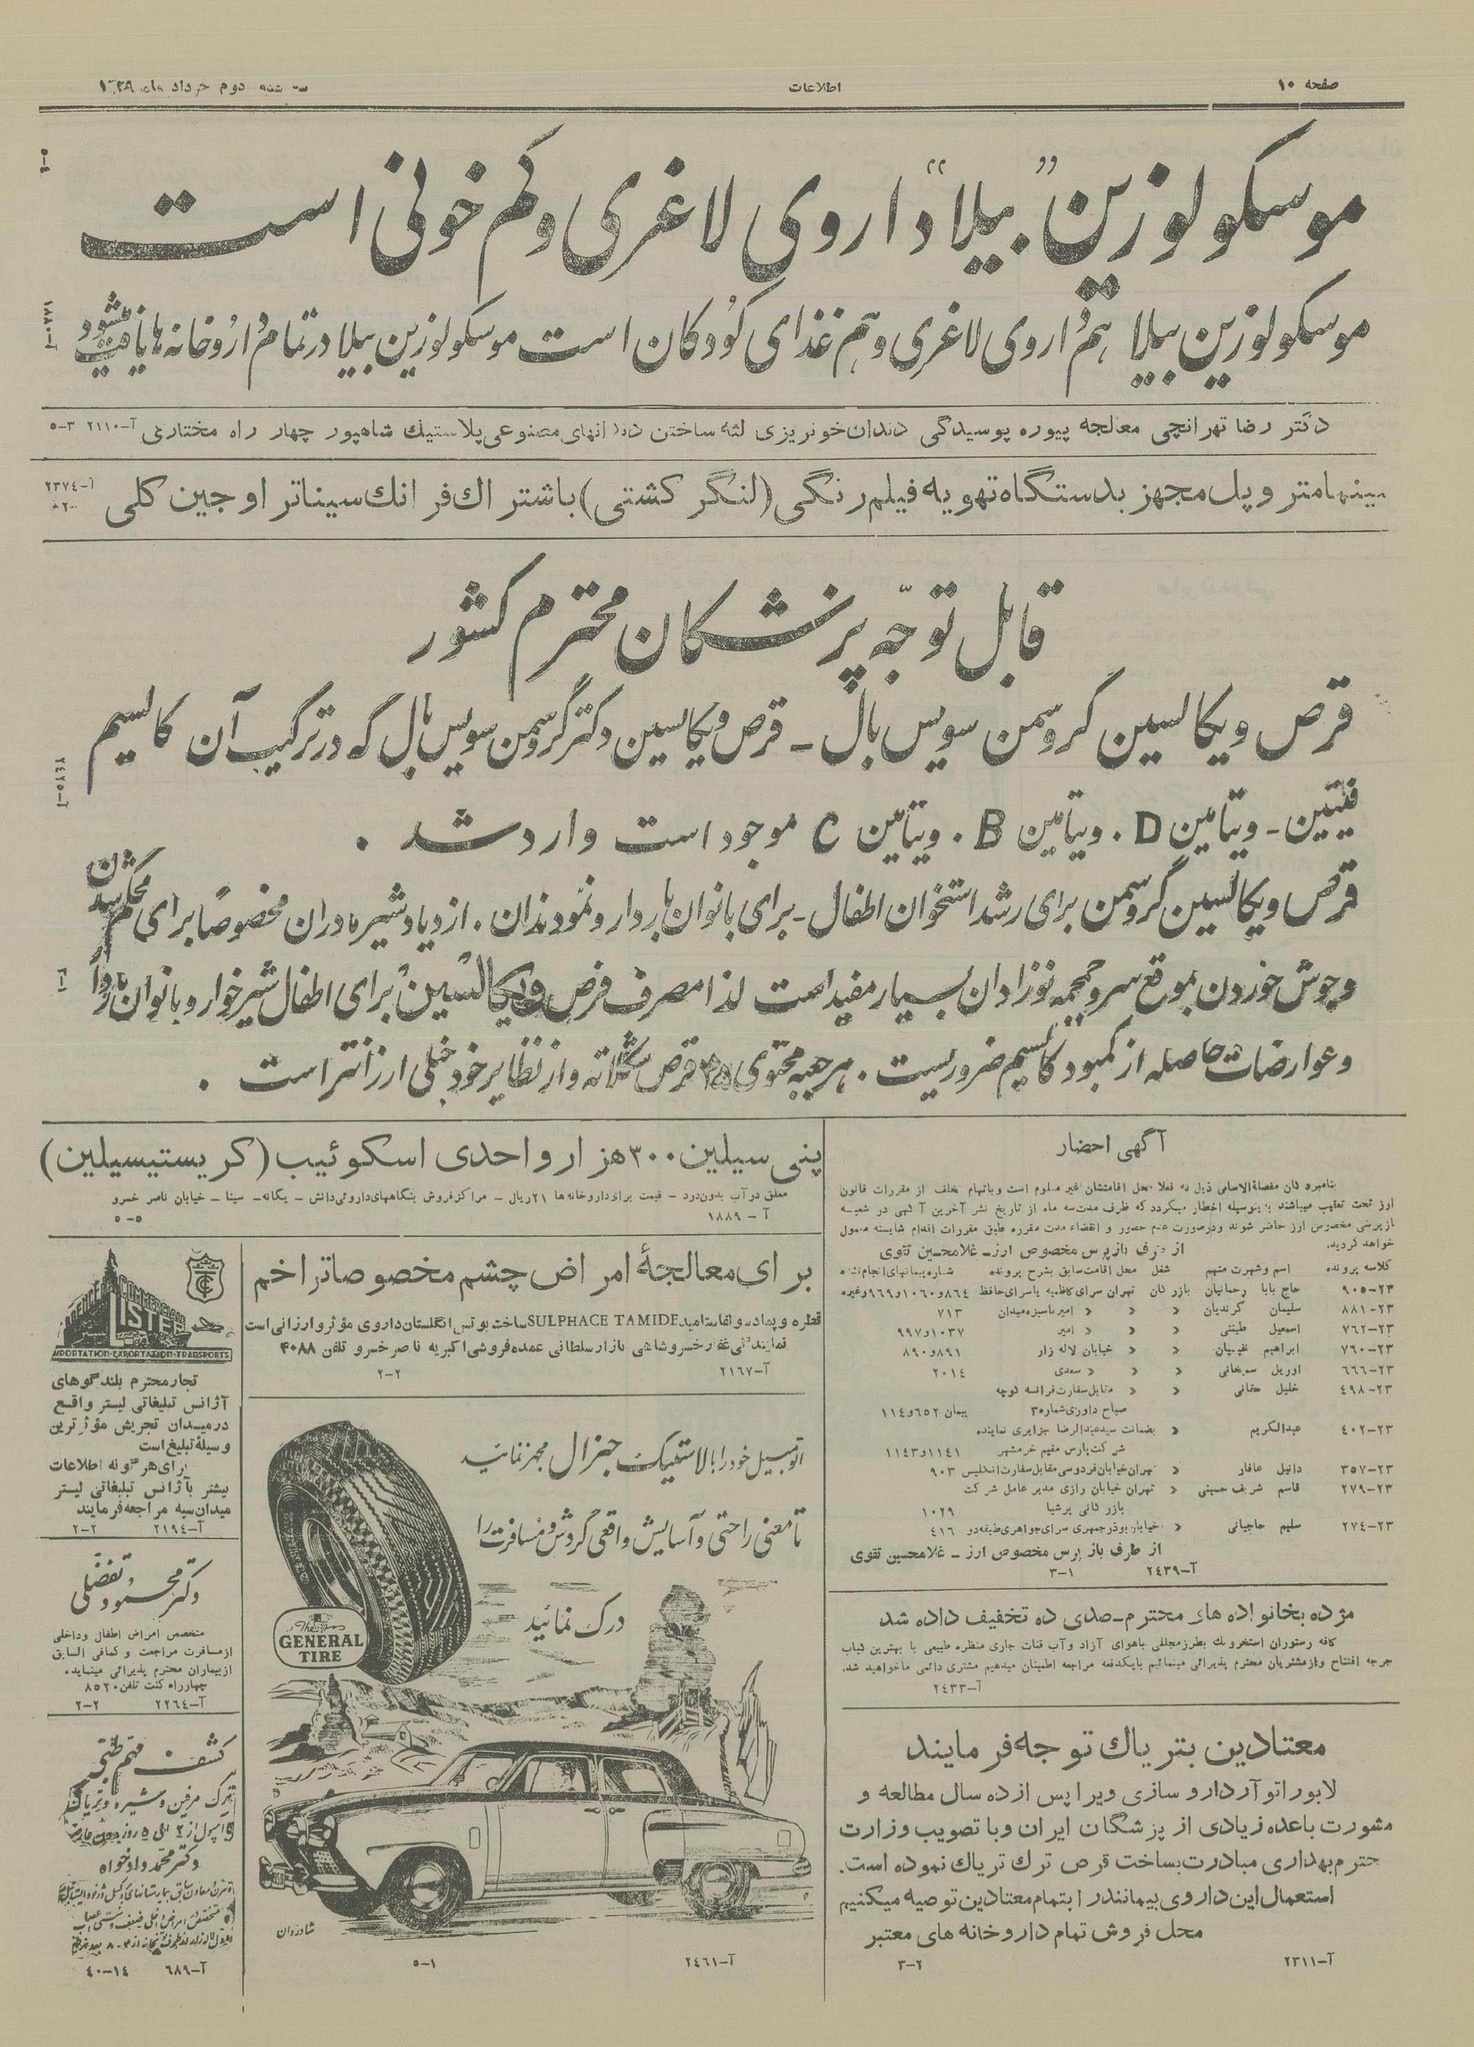 صفحه ۱۰
اطلاعات
سه شنبه دوم خرداد ماه ۱۳۲۹
موسکولوزین "بیلا" داروی لاغری و کم خونی است
موسکولوزین بیلا هم داروی لاغری و هم غذای کودکان است موسکولوزین بیلا در تمام داروخانه ها یافت میشود
آ-۱۸۸۰
دکتر رضا تهرانچی معالجه پیوره پوسیدگی دندان خونریزی لثه ساختن دندانهای مصنوعی پلاستیك شاهپور چهار راه مختاری آ-۲۱۱۰ ۳-۵
سینما متروپل مجهز بدستگاه تهویه فیلم رنگی (لنگر کشتی) باشتراك فرانك سیناترا و جین کلی آ-۲۳۷۴
قابل توجّه پزشکان محترم کشور
قرص ویکالسین گروسمن سویس بال - قرص ویکالسین دکتر گروسمن سویس بال که در ترکیب آن کالسیم
فیتین - ویتامین D . ویتامین B . ویتامین C موجود است وارد شد .
قرص ویکالسین گروسمن برای رشد استخوان اطفال - برای بانوان باردار و نمو دندان . ازدیاد شیر مادران مخصوصاً برای محکم شدن
وجوش خوردن بموقع سر و جمجمه نوزادان بسیار مفید است لذا مصرف قرص ویکالسین برای اطفال شیرخوار و بانوان باردار
و عوارضات حاصله از کمبود کالسیم ضروریست . هر جعبه محتوی قرص شکلاته و از نظایر خود خیلی ارزانتر است .
آ-۲۴۲۵
آگهی احضار
بنامبردگان مفصلةالاسامی ذیل که فعلا محل اقامتشان غیر معلوم است و باتهام تخلف از مقررات قانون
ارز تحت تعقیب میباشند بدینوسیله اخطار میگردد که ظرف مدت سه ماه از تاریخ نشر آخرین آگهی در شعبه
بازپرسی مخصوص ارز حاضر شوند و درصورت عدم حضور و انقضاء مدت مقرره طبق مقررات اقدام شایسته معمول
خواهد گردید.
از طرف بازپرس مخصوص ارز - غلامحسین تقوی
کلاسه پرونده اسم و شهرت متهم شغل محل اقامت سابق بشرح پرونده شماره پیمانهای انجام نشده
۲۳-۹۰۵ حاج بابا رحمانیان بازرگان تهران سرای کاظمیه یا سرای حافظ ۸۶۴و۱۰۶۰و۹۶۹وغیره
۲۳-۸۸۱ سلیمان کرندیان « « « امیر یا سبزه میدان ۷۱۳
۲۳-۷۶۲ اسمعیل « « « امیر ۱۰۳۷و۹۹۷
۲۳-۷۶۰ ابراهیم نفیسیان « « خیابان لاله زار ۸۹۱و۸۹۰
۲۳-۶۶۶ اوریل « « « سعدی ۲۰۱۴
۲۳-۴۹۸ خلیل حقانی « « مقابل سفارت فرانسه کوچه
صباح داوری شماره۳ پیمان ۶۵۲و۱۱۴
۲۳-۴۰۲ عبدالکریم « بضمانت سیدعبدالرضا جزایری نماینده
شرکت پارس مقیم خرمشهر ۱۱۴۱و۱۱۴۳
۲۳-۳۵۷ دانیل عاقار « تهران خیابان فردوسی مقابل سفارت انگلیس ۹۰۳
۲۳-۲۷۹ قاسم شریف حسینی « تهران خیابان رازی مدیر عامل شرکت
بازرگانی پرشیا ۱۰۲۹
۲۳-۲۷۴ سلیم حاجیانی « خیابان بوذرجمهری سرای جواهری طبقه دو ۴۱۶
از طرف بازپرس مخصوص ارز - غلامحسین تقوی
آ-۲۴۳۹ ۱-۳
مژده بخانواده های محترم - صدی ده تخفیف داده شد
کافه رستوران استخر ونك بطرز مجللی باهوای آزاد و آب قنات جاری منظره طبیعی با بهترین کباب
جرجه افتتاح و از مشتریان محترم پذیرائی مینمائیم بایکدفعه مراجعه اطمینان میدهیم مشتری دائمی ما خواهید شد.
آ-۲۴۳۳
معتادین بتریاك توجه فرمایند
لابوراتوآر داروسازی ویرا پس از ده سال مطالعه و
مشورت با عده زیادی از پزشگان ایران و با تصویب وزارت
محترم بهداری مبادرت بساخت قرص ترك تریاك نموده است.
استعمال این داروی بیمانند را بتمام معتادین توصیه میکنیم
محل فروش تمام داروخانه های معتبر
آ-۲۳۱۱ ۲-۳
پنی سیلین ۳۰۰ هزار واحدی اسکوئیب (کریستیسیلین)
معلق در آب بدون درد - قیمت برای داروخانه ها ۲۱ریال - مراکز فروش بنگاههای داروئی دانش - یگانه - سینا - خیابان ناصر خسرو
آ - ۱۸۸۹ ۵-۵
برای معالجهٔ امراض چشم مخصوصاتراخم
قطره و پماد سولفاستامید SULPHACETAMIDE ساخت بوتس انگلستان داروی مؤثر و ارزانی است
نمایندگی غفار خسروشاهی بازار سلطانی عمده فروشی اکبریه ناصر خسرو تلفن ۴۰۸۸
آ-۲۱۶۷ ۲-۲
اتومبیل خود را با لاستیک جنرال مجهز نمائید
تا معنی راحتی و آسایش واقعی گردش و مسافرت را
درک نمائید
The
GENERAL
TIRE
شادروان
آ-۲۴۶۱ ۱-۵
TC
COMMERCIAL
LISTER
IMPORTATION-EXPORTATION-TRANSPORTS
تجار محترم بلندگوهای
آژانس تبلیغاتی لیستر واقع
در میدان تجریش مؤثرترین
وسیلهٔ تبلیغ است
برای هرگونه اطلاعات
بیشتر بآژانس تبلیغاتی لیستر
میدان سپه مراجعه فرمایند
آ-۲۱۹۴ ۲-۲
دکتر محمود تفضّلی
متخصص امراض اطفال و داخلی
از مسافرت مراجعت و کمافی السابق
از بیماران محترم پذیرائی مینماید.
چهارراه کنت تلفن ۸۵۲۰
آ-۲۲۶۴ ۲-۲
کشف مهم طبّی
ترک مرفین و شیره و تریاک
دکتر محمد دادخواه
آ-۶۸۹ ۱۴-۴۰